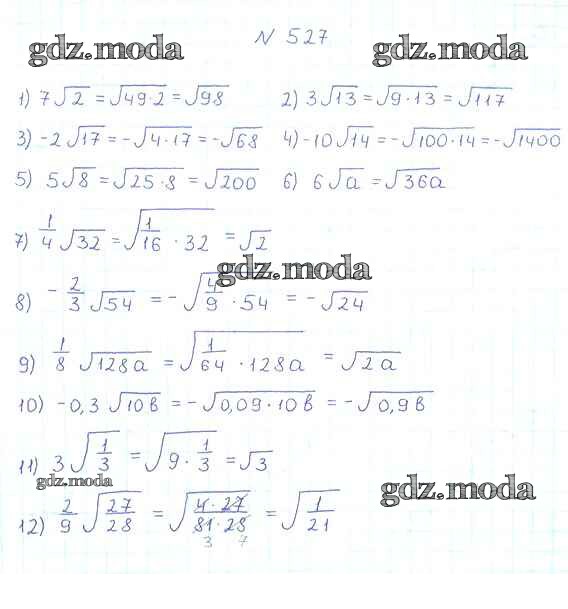 № 527
gdz.moda gdz.moda
1) 7√2 = √49·2 = √98 2) 3√13 = √9·13 = √117
3) -2√17 = -√4·17 = -√68 4) -10√14 = -√100·14 = -√1400
5) 5√8 = √25·8 = √200 6) 6√a = √36a
7) 1/4 √32 = √1/16 · 32 = √2
gdz.moda
8) -2/3 √54 = -√4/9 · 54 = -√24
9) 1/8 √128a = √1/64 · 128a = √2a
10) -0,3 √10в = -√0,09·10в = -√0,9в
11) 3√1/3 = √9·1/3 = √3
gdz.moda gdz.moda
12) 2/9 √27/28 = √4·27/81·28 = √1/21
3 7